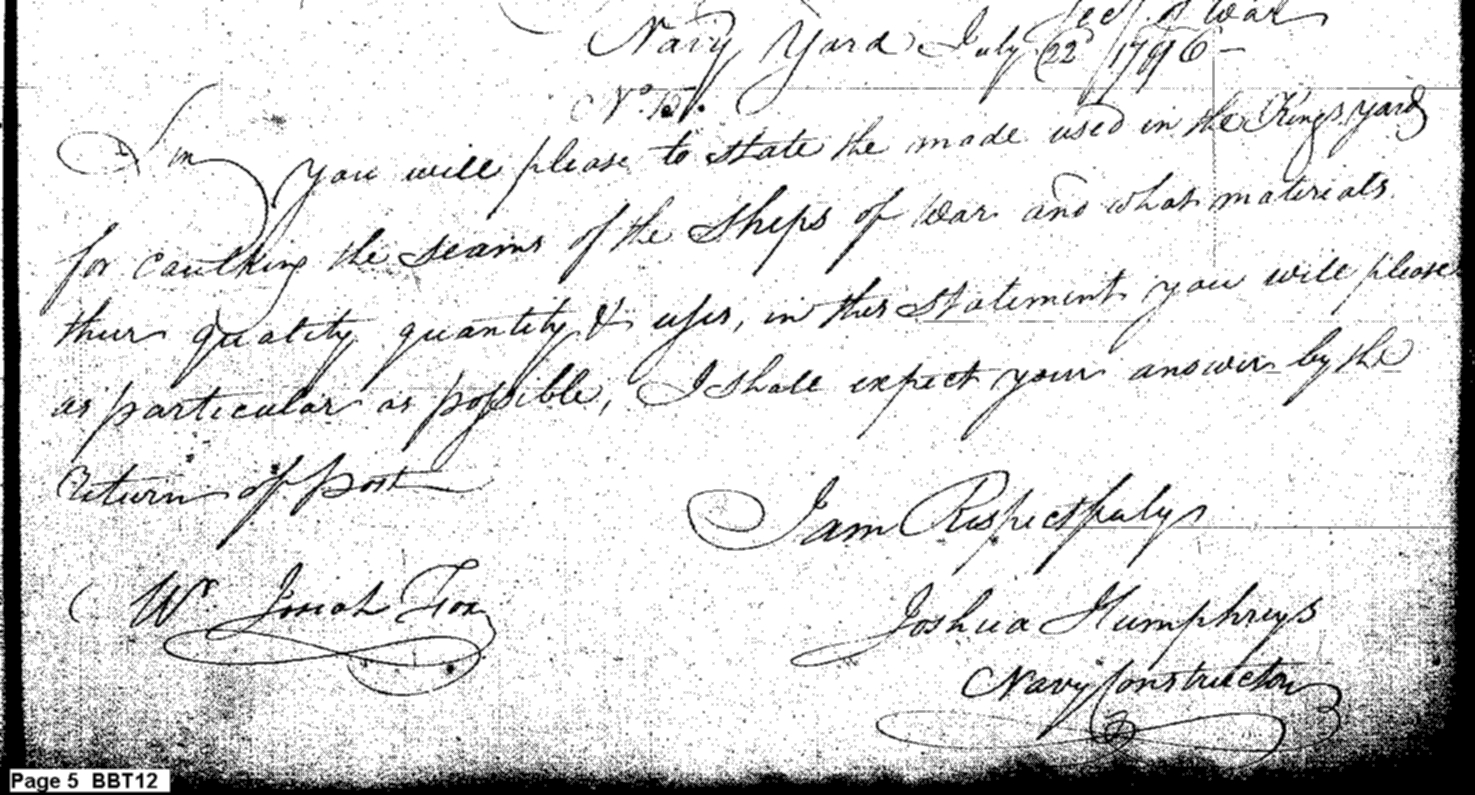 Secy. of War
Navy Yard July 22d 1796 -
No.
Sir
you will please to state the mode used in the Kings yards
for caulking the seams of the Ships of War and what materials
their quality quantity & uses, in this statement you will please
as particular as possible, I shall expect your answer by the
return of post
I am Respectfuly
Mr. Josiah Fox
Joshua Humphreys
Navy Constructor
Page 5 BBT12